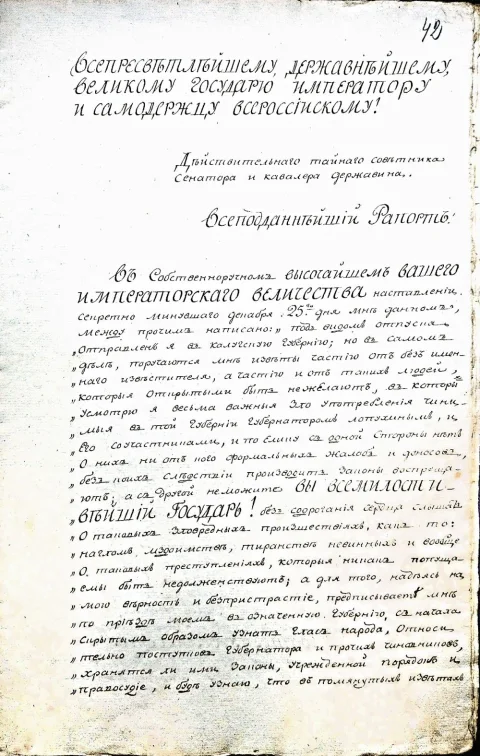 42
ВСЕПРЕСВѢТЛѢЙШЕМУ, ДЕРЖАВНѢЙШЕМУ,
ВЕЛИКОМУ ГОСУДАРЮ ИМПЕРАТОРУ
И САМОДЕРЖЦУ ВСЕРОССІЙСКОМУ!
Дѣйствительнаго тайнаго совѣтника
Сенатора и кавалера Державина.
Всеподданнѣйшій Рапортъ.
Въ Собственноручномъ ВЫСОЧАЙШЕМЪ ВАШЕГО
ИМПЕРАТОРСКАГО ВЕЛИЧЕСТВА наставленіи
секретно минувшаго декабря 25го дня мнѣ данномъ,
между прочимъ написано: „подъ видомъ отпуска
„Отправленъ я въ калужскую Губернію; но въ самомъ
„дѣлѣ, поручаются мнѣ извѣты частію отъ безъимен-
„наго извѣстителя, а частію и отъ такихъ людей,
„которыя Открытыми быть нежелаютъ, въ которыхъ
„Усмотрю я весьма важныя Зло употребленія чини-
„мыя въ той Губерніи Губернаторомъ лопухинымъ, и
„Его соучастниками, и что Слику съ одной Стороны нѣтъ
„О нихъ ни отъ кого формальныхъ жалобъ и доносовъ,
„безъ коихъ слѣдствіи производить Законы воспреща-
„ютъ; а съ другой неможите ВЫ ВСЕМИЛОСТИ-
„ВѢЙШІЙ ГОСУДАРЬ! безъ содроганія сердца слышать
„О таковыхъ Зловредныхъ произшествіяхъ, какъ то:
„нагломъ мздоимствѣ, тиранствѣ невинныхъ и вообще
„О таковыхъ преступленіяхъ, которыя никакъ потуща-
„емы быть недолженствуютъ; а для того, надѣясь на
„мою вѣрность и безпристрастіе, предписываетъ мнѣ
„по пріѣздѣ моемъ въ означенную Губернію, съ начала
„скрытымъ образомъ узнать Гласъ народа, Относи-
„тельно поступковъ Губернатора и прочихъ чиновниковъ,
„хранятся ли ими Законы, Учрежденной порядокъ и
„правосудіе, и будѣ узнаю, что въ помянутыхъ извѣтахъ